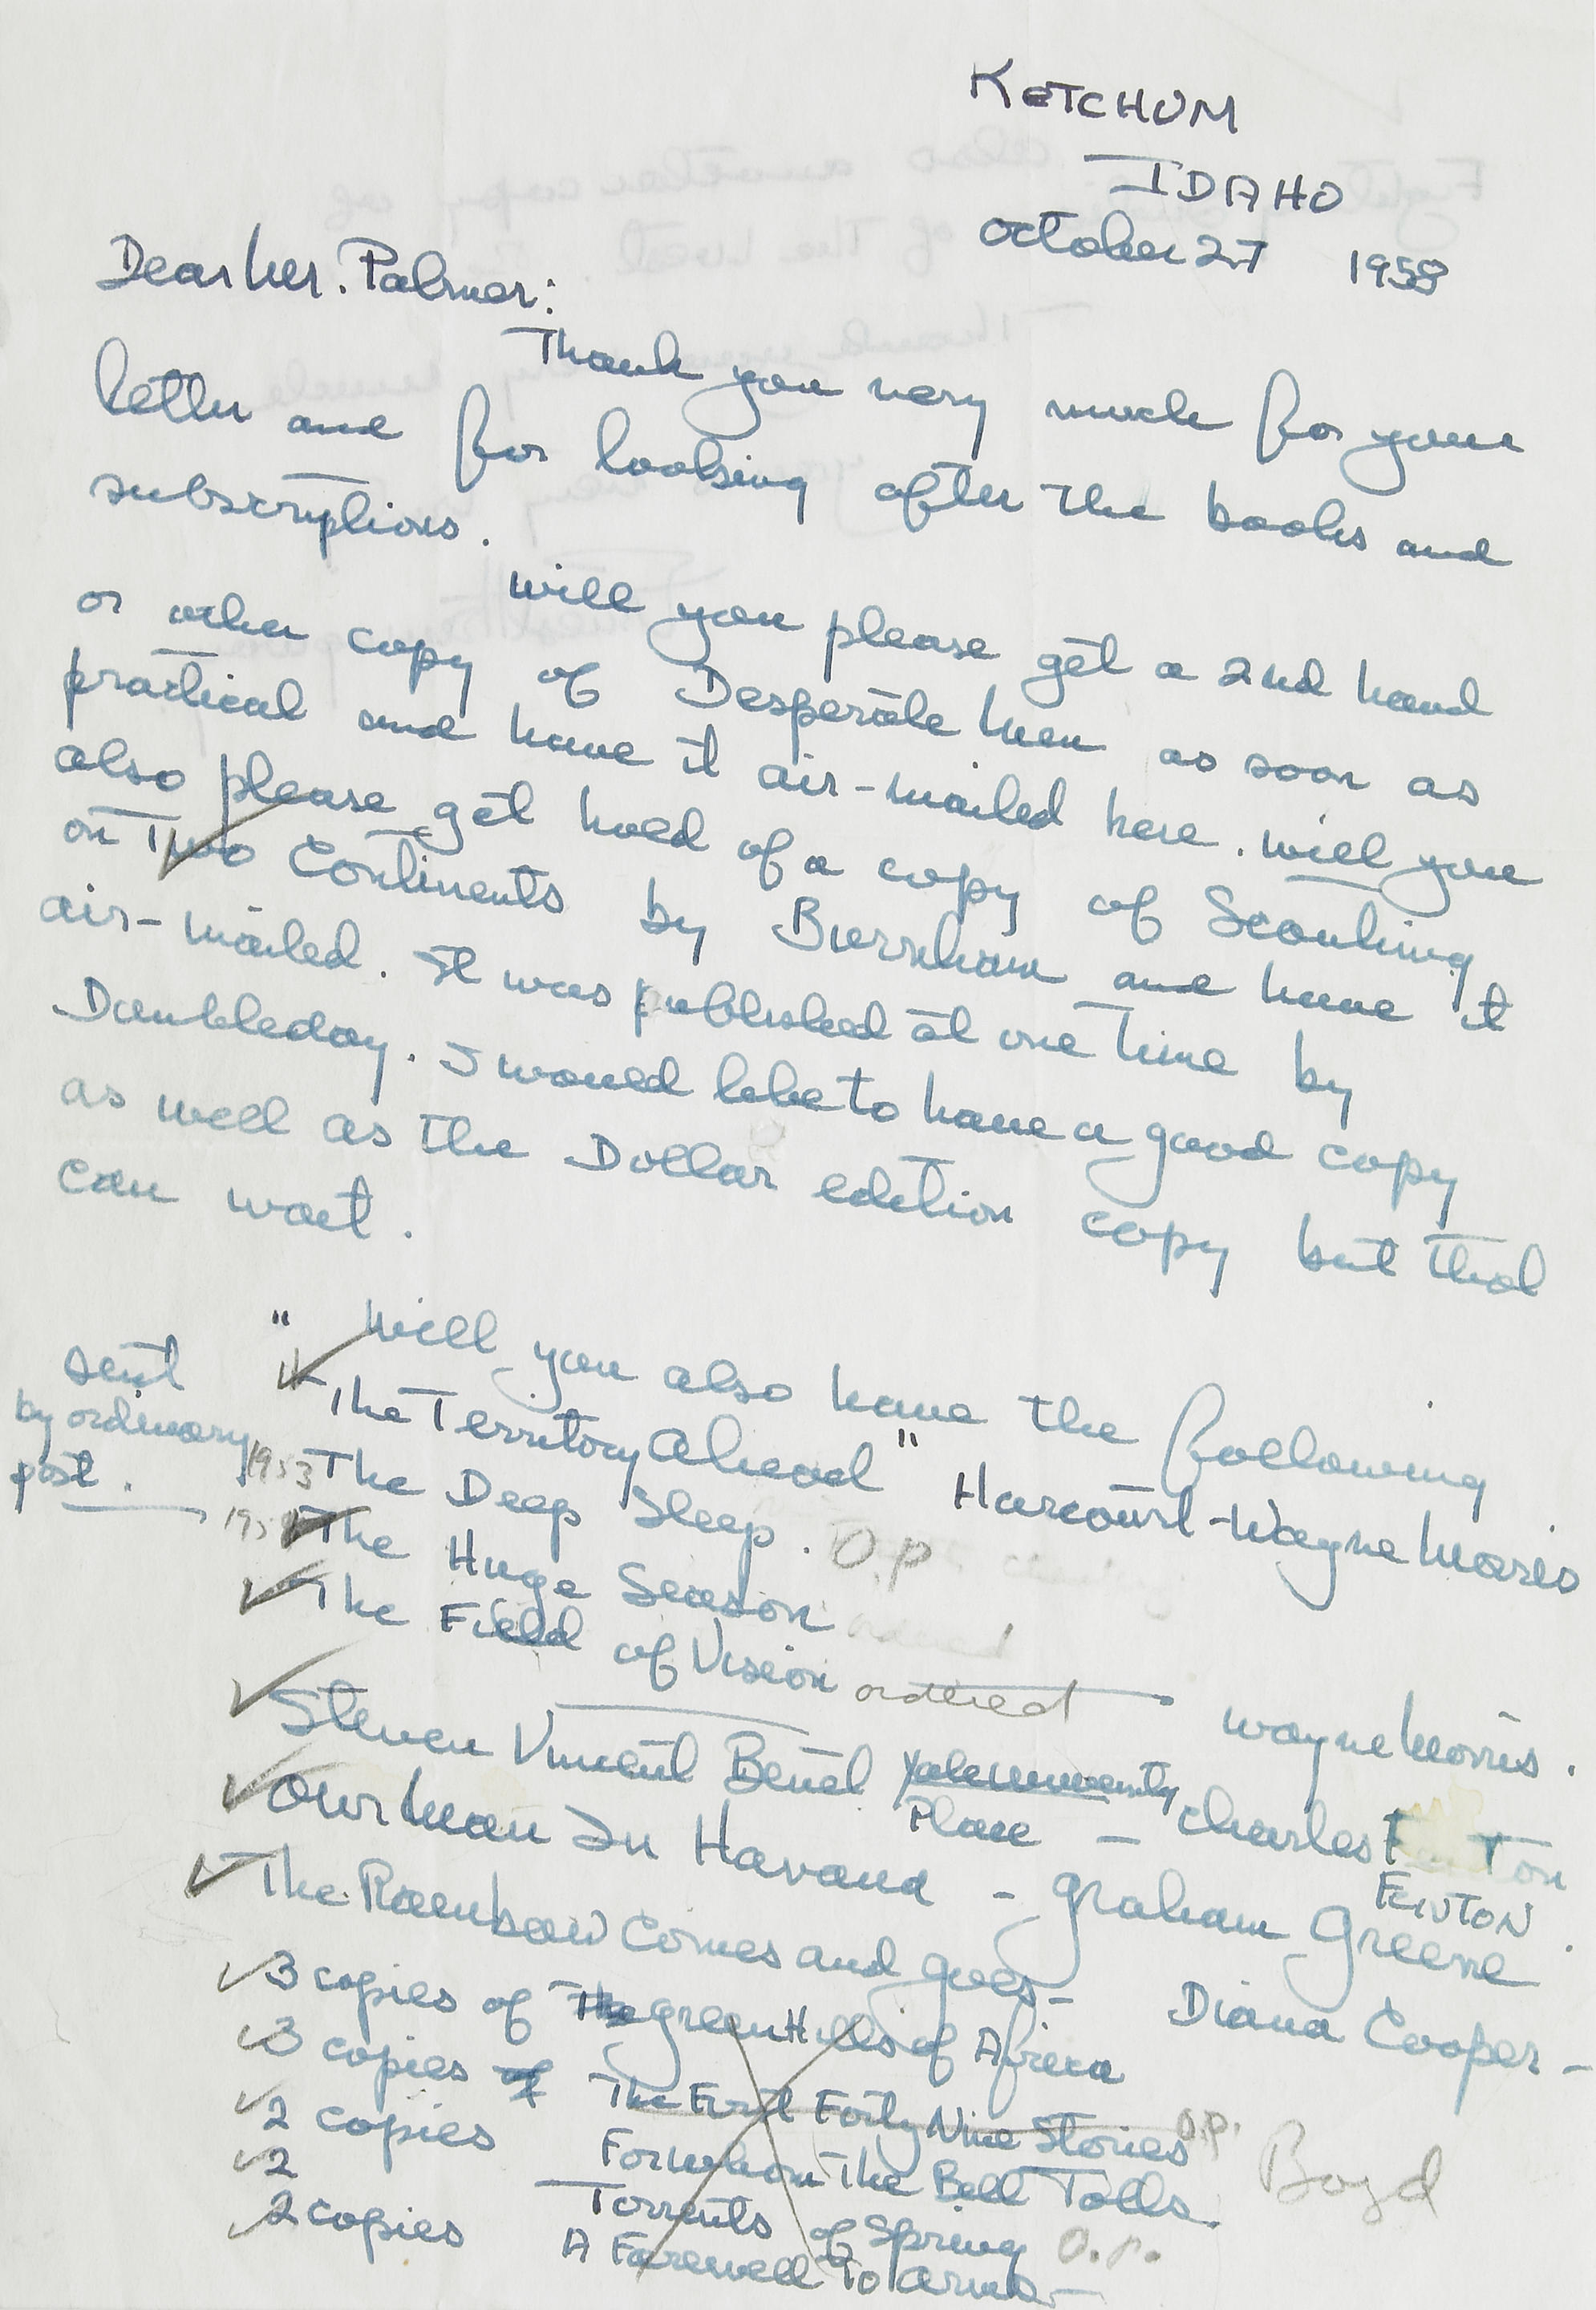 KETCHUM
IDAHO
October 27 1958
Dear Mr. Palmer:
Thank you very much for your
letter and for looking after the books and
subscriptions.
Will you please get a 2nd hand
or other copy of Desperate Men as soon as
practical and have it air-mailed here. Will you
also please get hold of a copy of Scouting
on Two Continents by Burnham and have it
air-mailed. It was published at one time by
Doubleday. I would like to have a good copy
as well as the Dollar edition copy but that
can wait.
Will you also have the following
sent by ordinary post.
" The Territory Ahead " Harcourt - Wayne Morris
1953 The Deep Sleep. O.P
The Huge Season
The Field of Vision ordered Wayne Morris.
Steven Vincent Benet Yale University Charles F ton
Place - FENTON.
Our Man In Havana - Graham Greene
The Rainbow Comes and goes - Diana Cooper -
3 copies of The green Hills of Africa
3 copies of The First Forty Nine Stories O.P.
2 copies For Whom The Bell Tolls. Boyd
2 Torrents of Spring O.P.
2 copies A Farewell To Arms -